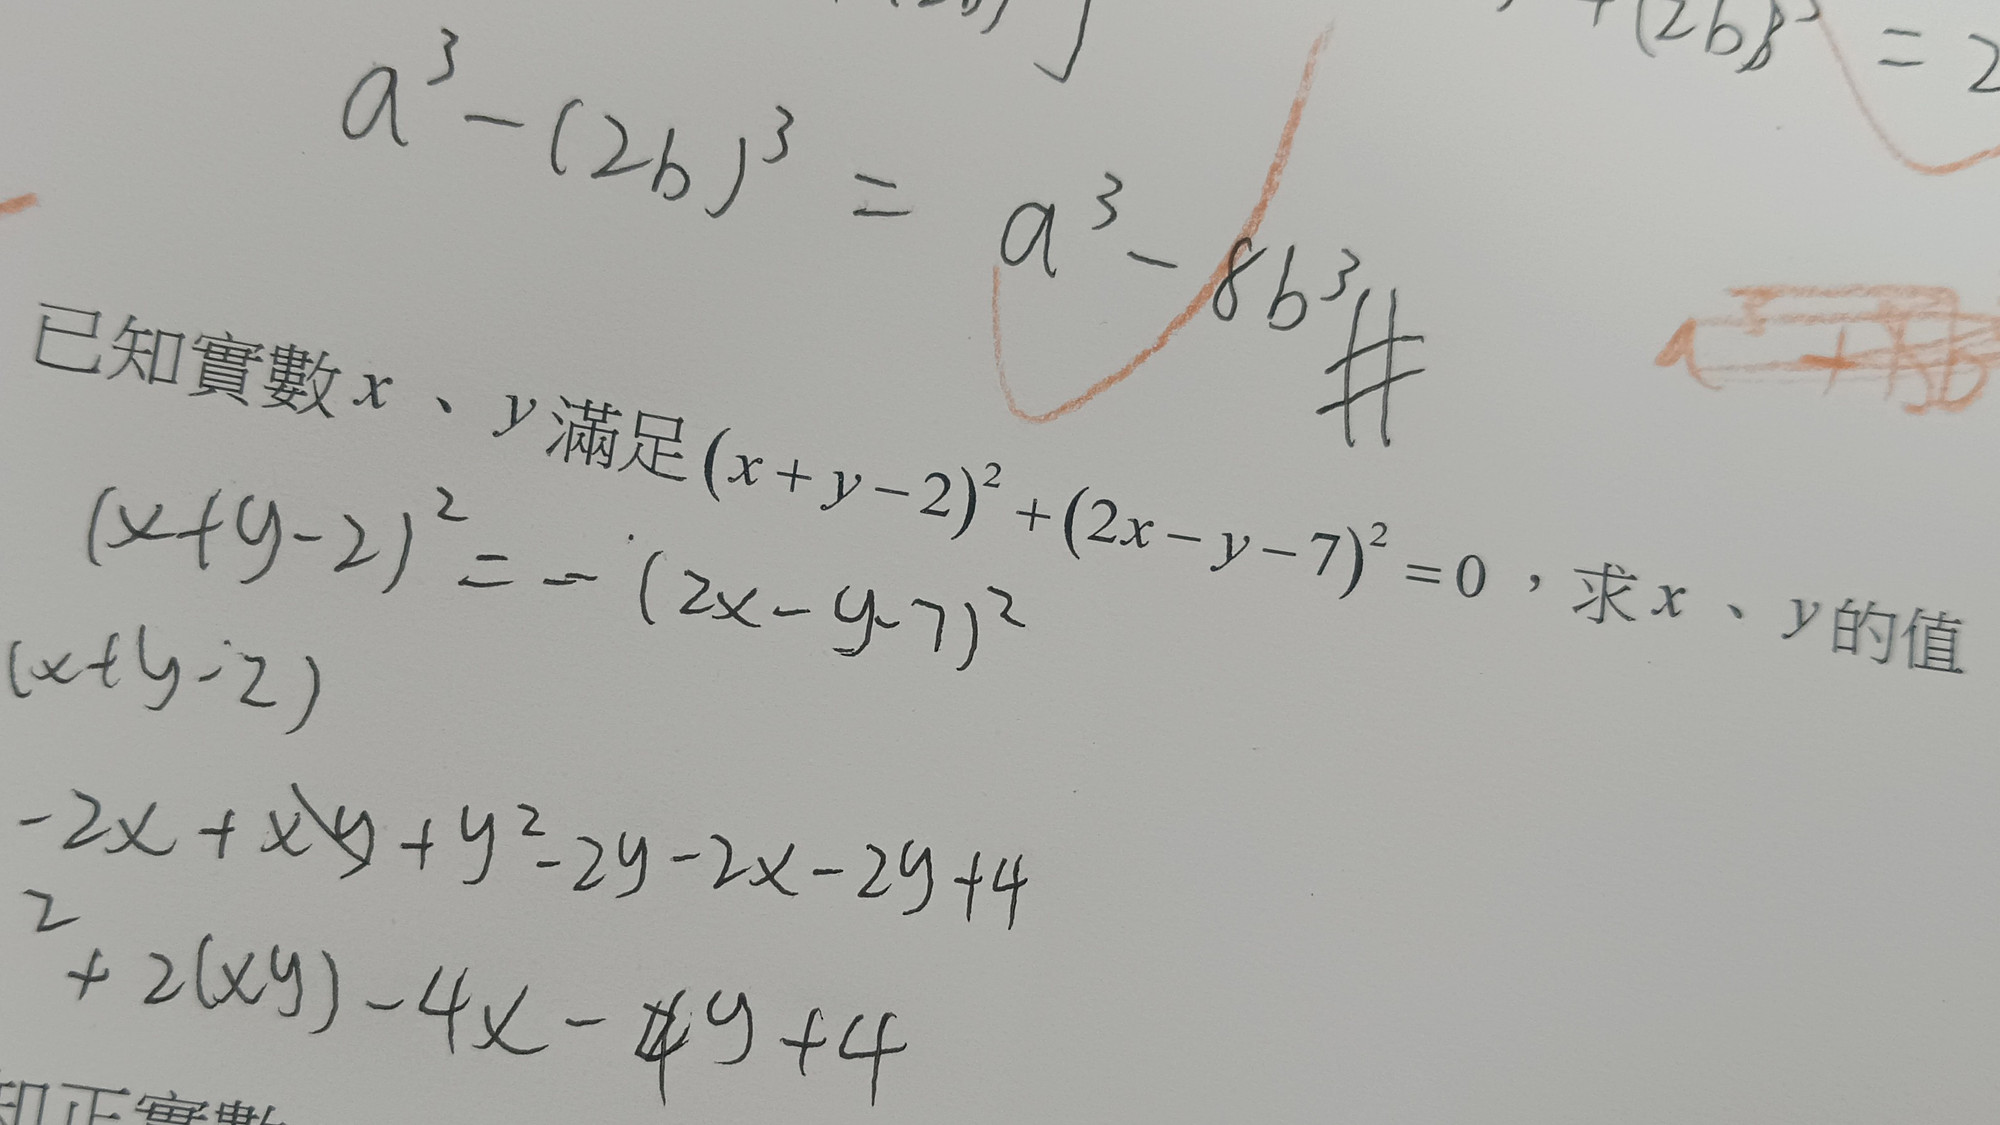 +(2b)³ = 2
a³ - (2b)³ = a³ - 8b³ #
已知實數 x 、 y 滿足 (x + y - 2)² + (2x - y - 7)² = 0 ，求 x 、 y 的值
(x+y-2)² = - (2x - y - 7)²
(x+y-2)
-2x + xy + y² - 2y - 2x - 2y + 4
² + 2(xy) - 4x - 4y + 4
知正實數